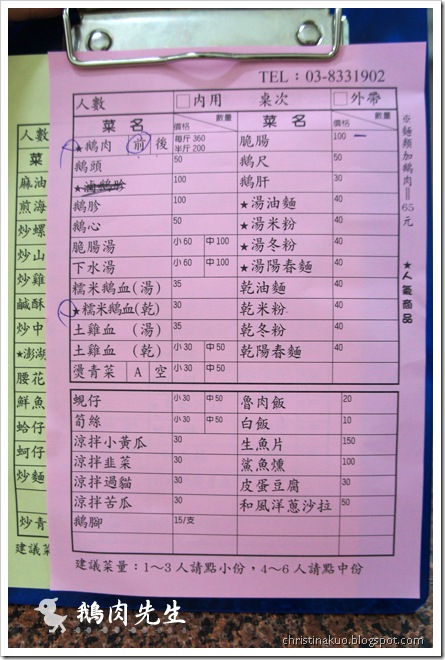 TEL：03-8331902
人數 □內用 桌次 □外帶
菜名 價格 數量 菜名 價格 數量
★鵝肉 前 後 每斤 360 半斤 200 脆腸 100
鵝頭 50 鵝尺 50
★滷鵝胗 100 鵝肝 30
鵝胗 100 ★湯油麵 40
鵝心 50 ★湯米粉 40
脆腸湯 小60 中100 ★湯冬粉 40
下水湯 小60 中100 ★湯陽春麵 40
糯米鵝血(湯) 35 乾油麵 40
★糯米鵝血(乾) 30 乾米粉 40
土雞血 (湯) 35 乾冬粉 40
土雞血 (乾) 小30 中50 乾陽春麵 40
燙青菜 A 空 小30 中50
蜆仔 小30 中50 魯肉飯 20
筍絲 小30 中50 白飯 10
涼拌小黃瓜 30 生魚片 150
涼拌韭菜 30 鯊魚燻 100
涼拌過貓 30 皮蛋豆腐 30
涼拌苦瓜 30 和風洋蔥沙拉 50
鵝腳 15/支
建議菜量：1～3人請點小份，4～6人請點中份
※麵類加鵝肉＝65元
★人氣商品
人數
菜
麻油
煎海
炒螺
炒山
炒雞
鹹酥
炒中
★澎湖
腰花
鮮魚
蛤仔
蚵仔
炒麵
炒青
建議菜
鵝肉先生
christinakuo.blogspot.com